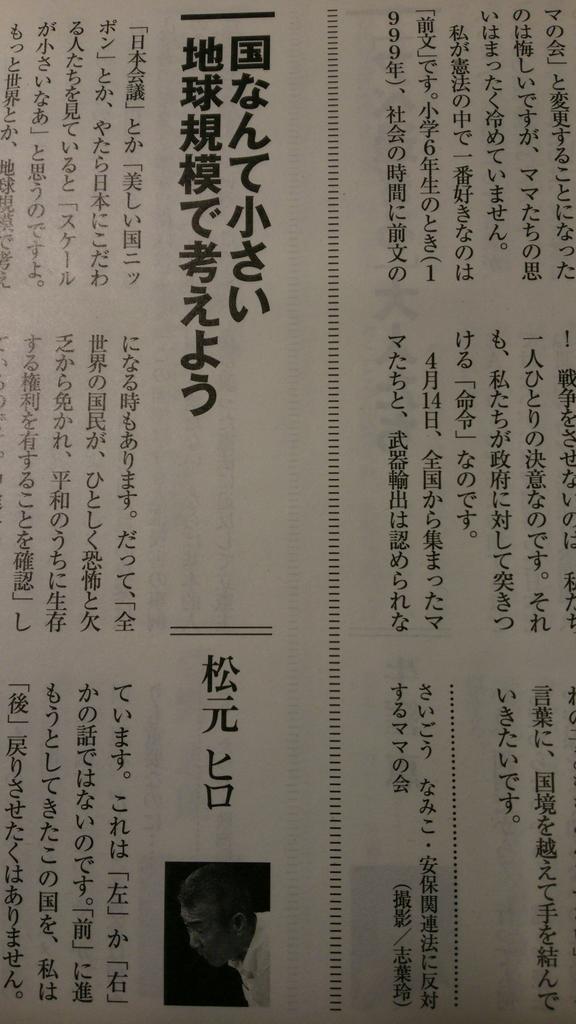 マの会」と変更することになった
のは悔しいですが、ママたちの思
いはまったく冷めていません。
私が憲法の中で一番好きなのは
「前文」です。小学6年生のとき(1
999年)、社会の時間に前文の
! 戦争をさせないのは、私たち
一人ひとりの決意なのです。それ
も、私たちが政府に対して突きつ
ける「命令」なのです。
4月14日、全国から集まったマ
マたちと、武器輸出は認められな
言葉に、国境を越えて手を結んで
いきたいです。
さいごう なみこ・安保関連法に反対
するママの会
(撮影/志葉玲)
国なんて小さい
地球規模で考えよう
松元 ヒロ
「日本会議」とか「美しい国ニッ
ポン」とか、やたら日本にこだわ
る人たちを見ていると「スケール
が小さいなあ」と思うのですよ。
もっと世界とか、地球規模で考え
になる時もあります。だって、「全
世界の国民が、ひとしく恐怖と欠
乏から免かれ、平和のうちに生存
する権利を有することを確認」し
ています。これは「左」か「右」
かの話ではないのです。「前」に進
もうとしてきたこの国を、私は
「後」戻りさせたくはありません。